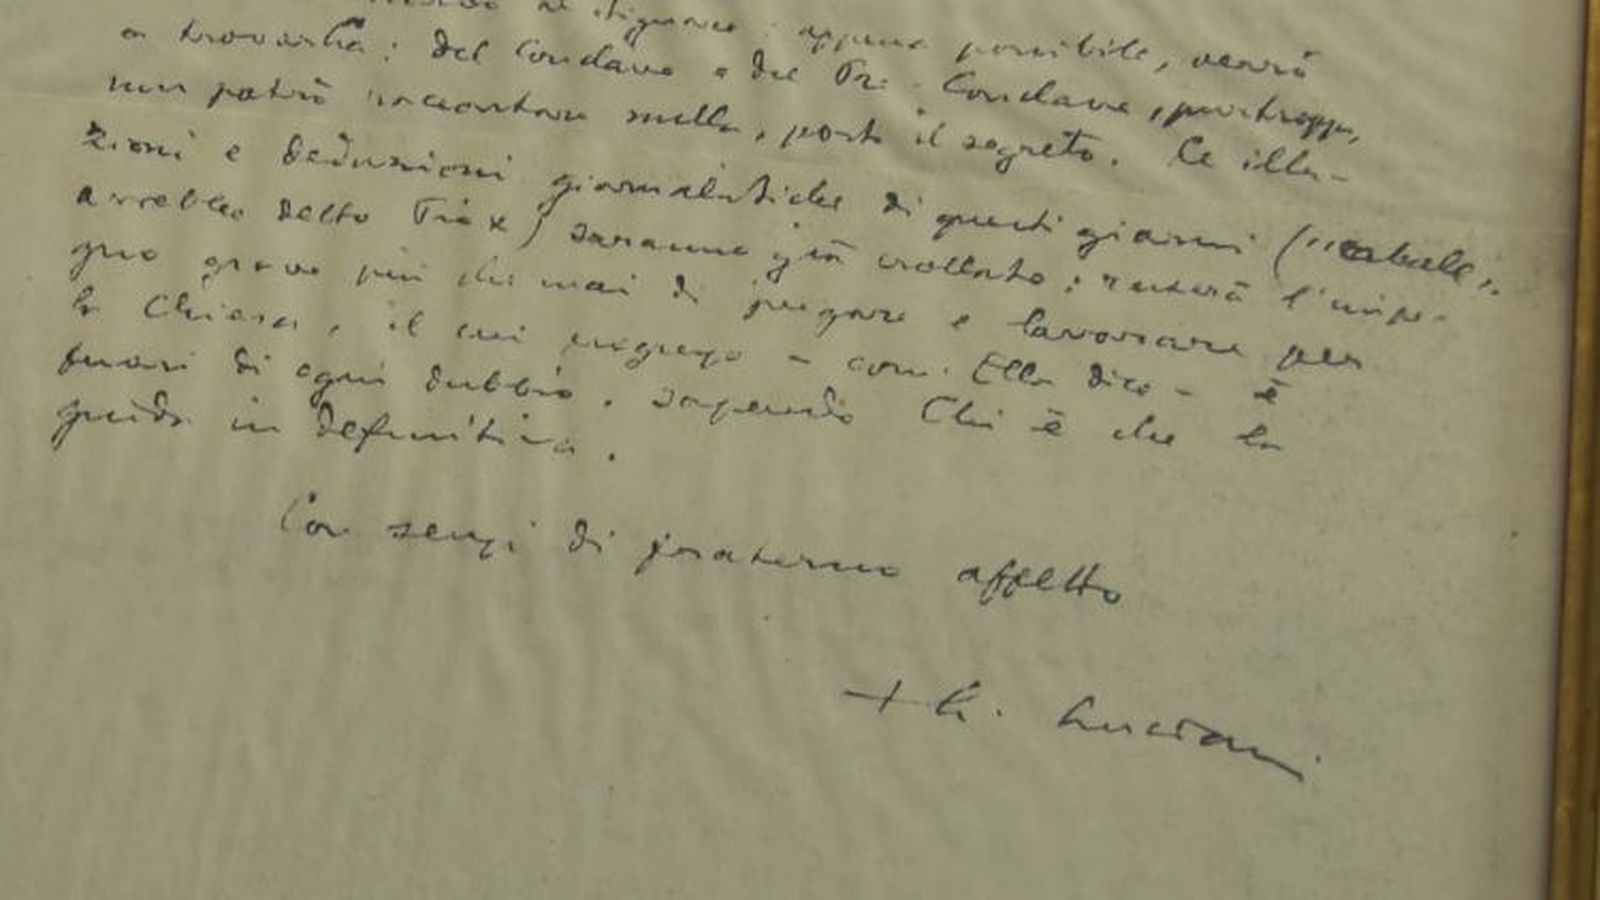 appena possibile, verrò
a trovarla: del Conclave e del Pre Conclave, purtroppo,
non potrò raccontare nulla, posto il segreto. Le illa-
zioni e deduzioni giornalistiche di questi giorni ("cabale",
avrebbe detto Tiex) saranno già crollate; resterà l'impe-
gno grave più che mai di pregare e lavorare per
la Chiesa, il cui progresso - come Ella dice - è
fuori di ogni dubbio, sapendo Chi è che la
guida in definitiva.
Con sensi di fraterno affetto
+ A. Luciani